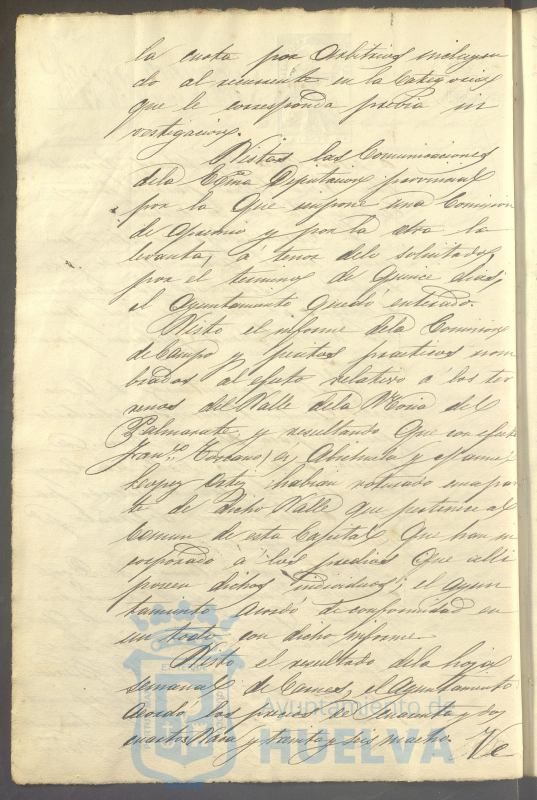 la cuota por Arbitrios incluyen
do al recurrente en la Categoria
que le corresponda previa in
vestigacion.
Vistas las Comunicaciones
dela Exma Diputacion provincial
por la que impone una Comision
de apremio y por la otra la
levanta, á tenor delo solicitado,
por el termino de quince dias;
el Ayuntamiento quedó enterado.
Visto el informe dela Comision
de Campo y peritos practicos nom
brados al efecto relativo á los ter
renos del Valle dela Noria del
Palmarete, y resultando que con efecto
Fran.co y Manuel
Lopez Ortiz habian roturado una par
te de dicho Valle que pertenece al
Comun de esta Capital que han in
corporado á los predios que alli
poseen dichos individuos; el ayun
tamiento acordó de conformidad en
un todo con dicho informe.
Visto el resultado dela hoja
semanal de Carnes, el Ayuntamiento
acordó los precios de cuarenta y dos
cuartos Vaca y treinta y seis macho. Ve
Ayuntamiento de
HUELVA